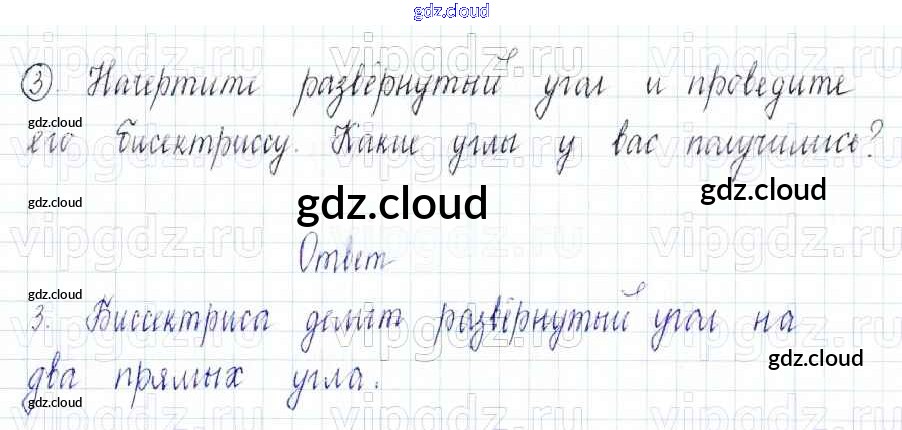 gdz.cloud
gdz.cloud
vipgdz.ru vipgdz.ru vipgdz.ru
③. Начертите развёрнутый угол и проведите
gdz.cloud
его биссектриссу. Какие углы у вас получились?
gdz.cloud gdz.cloud gdz.cloud
vipgdz.ru vipgdz.ru vipgdz.ru
Ответ
gdz.cloud
3. Биссектриса делит развёрнутый угол на
vipgdz.ru vipgdz.ru vipgdz.ru
gdz.cloud
два прямых угла.
gdz.cloud
vipgdz.ru vipgdz.ru vipgdz.ru